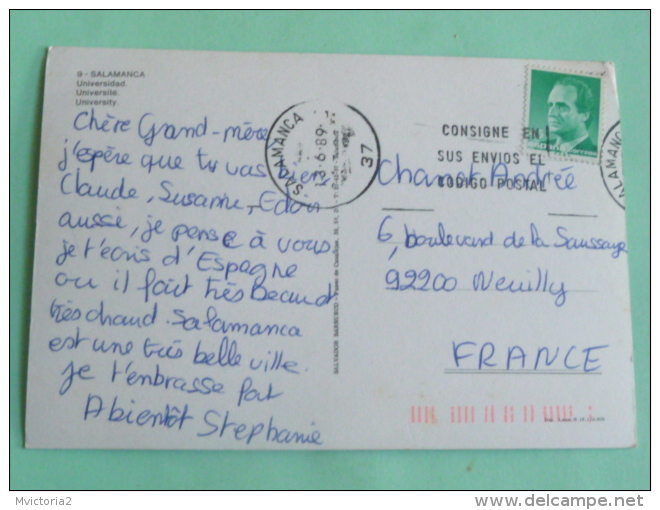 9 - SALAMANCA
Universidad.
Université.
University.
Chère Grand-mère
j'espère que tu vas bien
Claude, Susanne, Edon
aussi, je pense à vous
je t'écris d'Espagne
ou il fait très Beau et
très chaud. Salamanca
est une très belle ville.
Je t'embrasse fort
A bientôt Stephanie
SALAMANCA
13-6-89
37
CONSIGNE EN
SUS ENVIOS EL
CODIGO POSTAL
SALAMANCA
Chamot Andrée
6, boulevard de la Saussaye
92200 Neuilly
FRANCE
SALVADOR BARRUECO
Mvictoria2
delcampe.net